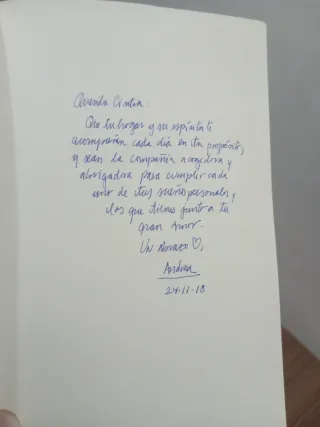 Querida Cintia:
Que tu hogar y su espíritu te
acompañen cada día en tu propósito,
y sean la compañía acogedora y
abrigadora para cumplir cada
uno de tus sueños personales, y
los que tienes junto a tu
gran amor.
Un Abrazo ♡,
Andrea
24-11-18